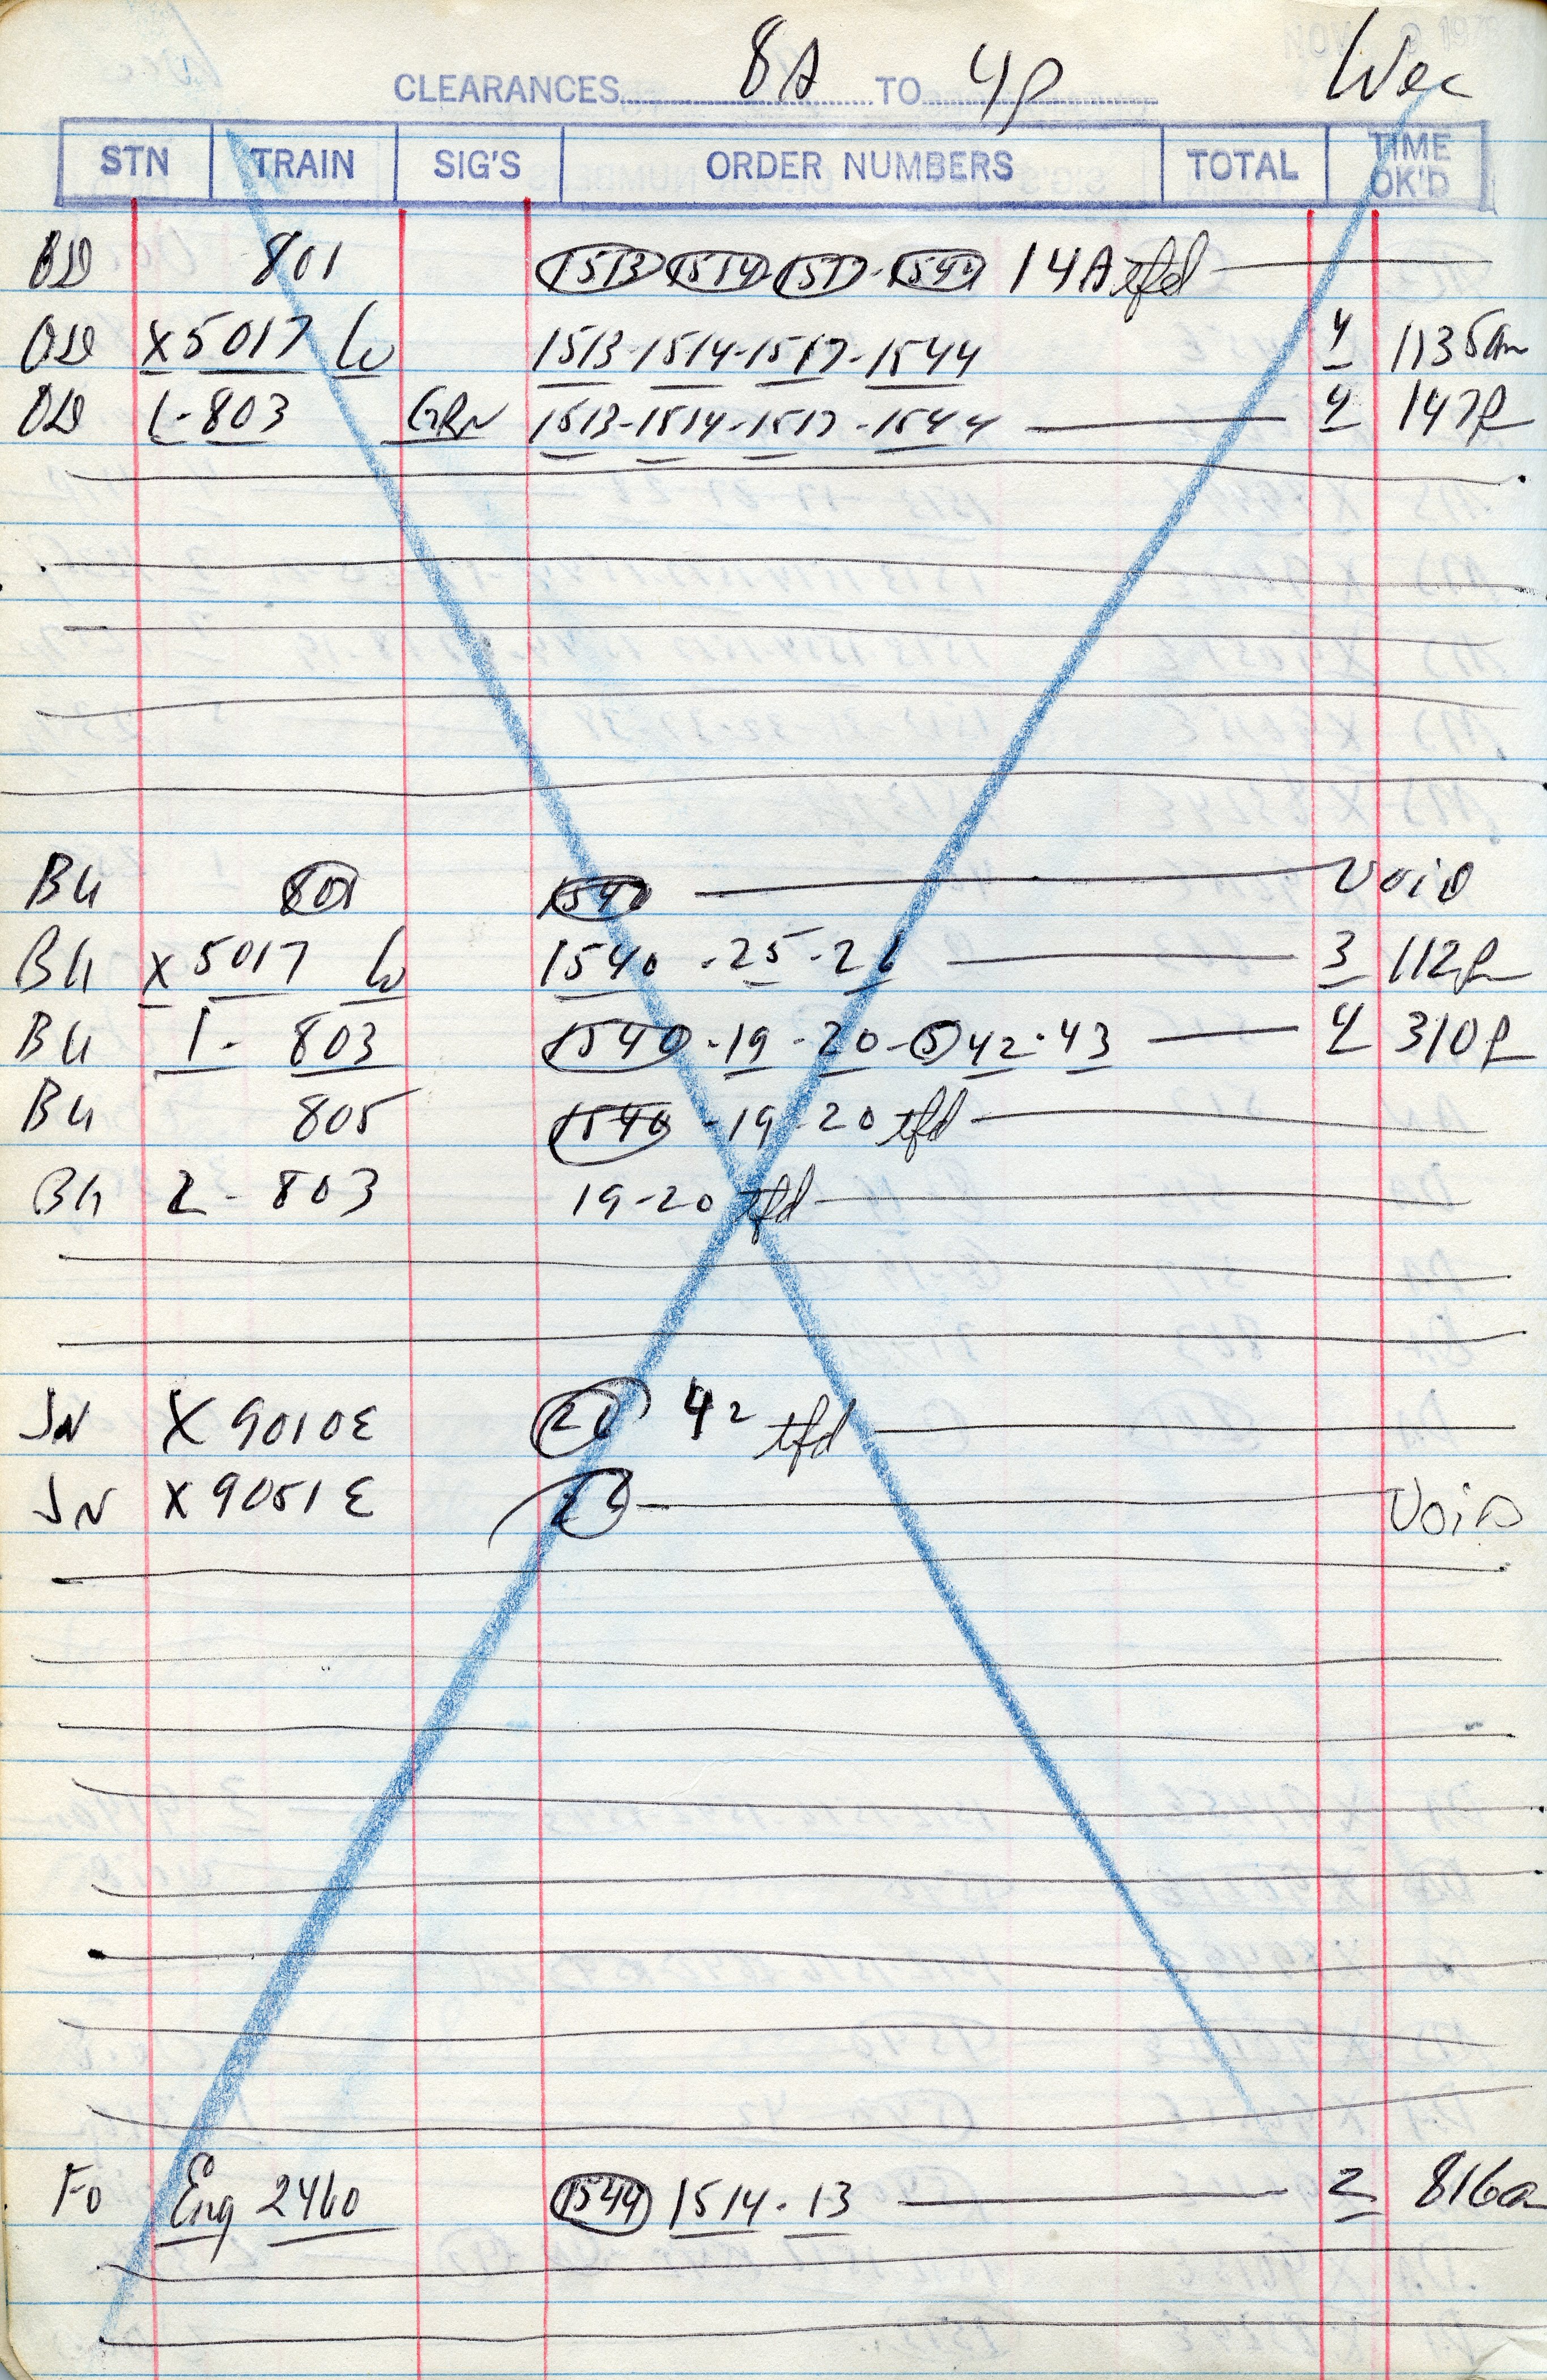 CLEARANCES 8A TO 4P Wed
STN TRAIN SIG'S ORDER NUMBERS TOTAL TIME OK'D
OD 801 1513 1514 1517 - 1544 14A tfd
OD X 5017 W 1513-1514-1517-1544 4 1135am
OD 1-803 GRN 1513-1514-1517-1544 4 147P
BU 801 1540 Void
BU X 5017 W 1540 -25-26 3 112P
BU 1- 803 1540 -19-20- 5 42-43 4 310P
BU 805 1540 -19-20 tfd
BU 2- 803 19-20 tfd
JN X 9010 E 26 42 tfd
JN X 9051 E 26 Void
FO Eng 2460 1544 1514-13 2 816a